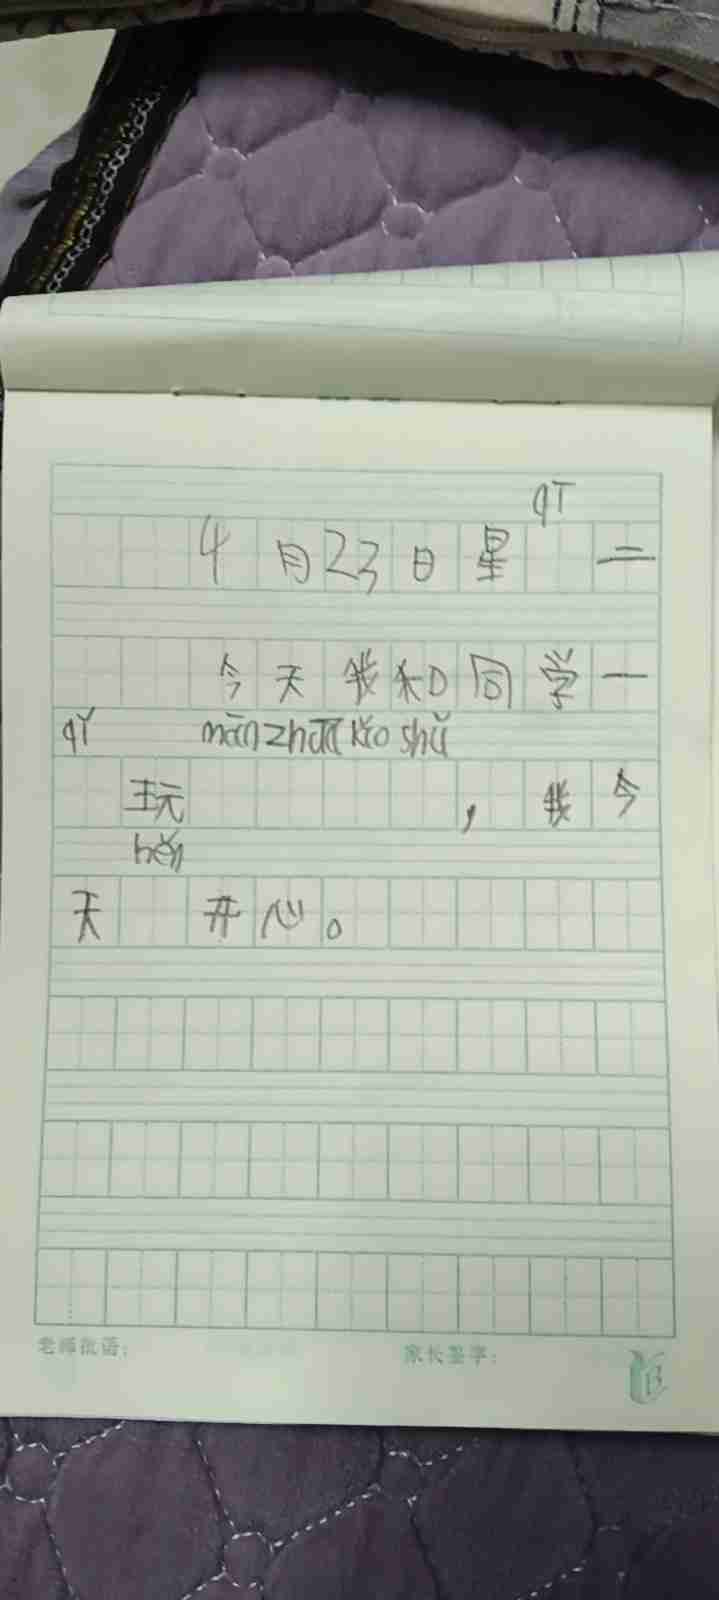 qī
4月23日星 二
今天我和同学一
qǐ mānzhuō lǎo shǔ
玩 ，我今
hěn
天 开心。
老师批语：
家长签字：
B